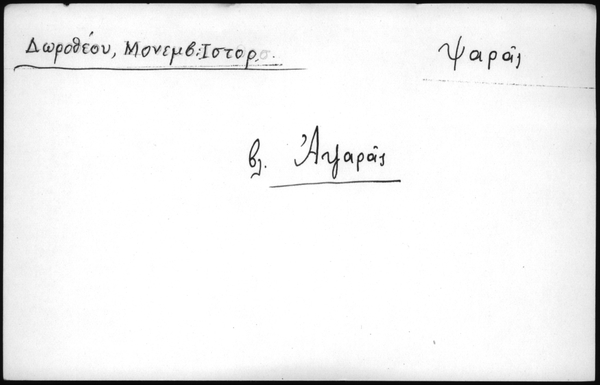 Δωροθέου, Μονεμβ: Ιστορ. Ψαρᾶς
βλ. Ἀψαρᾶς